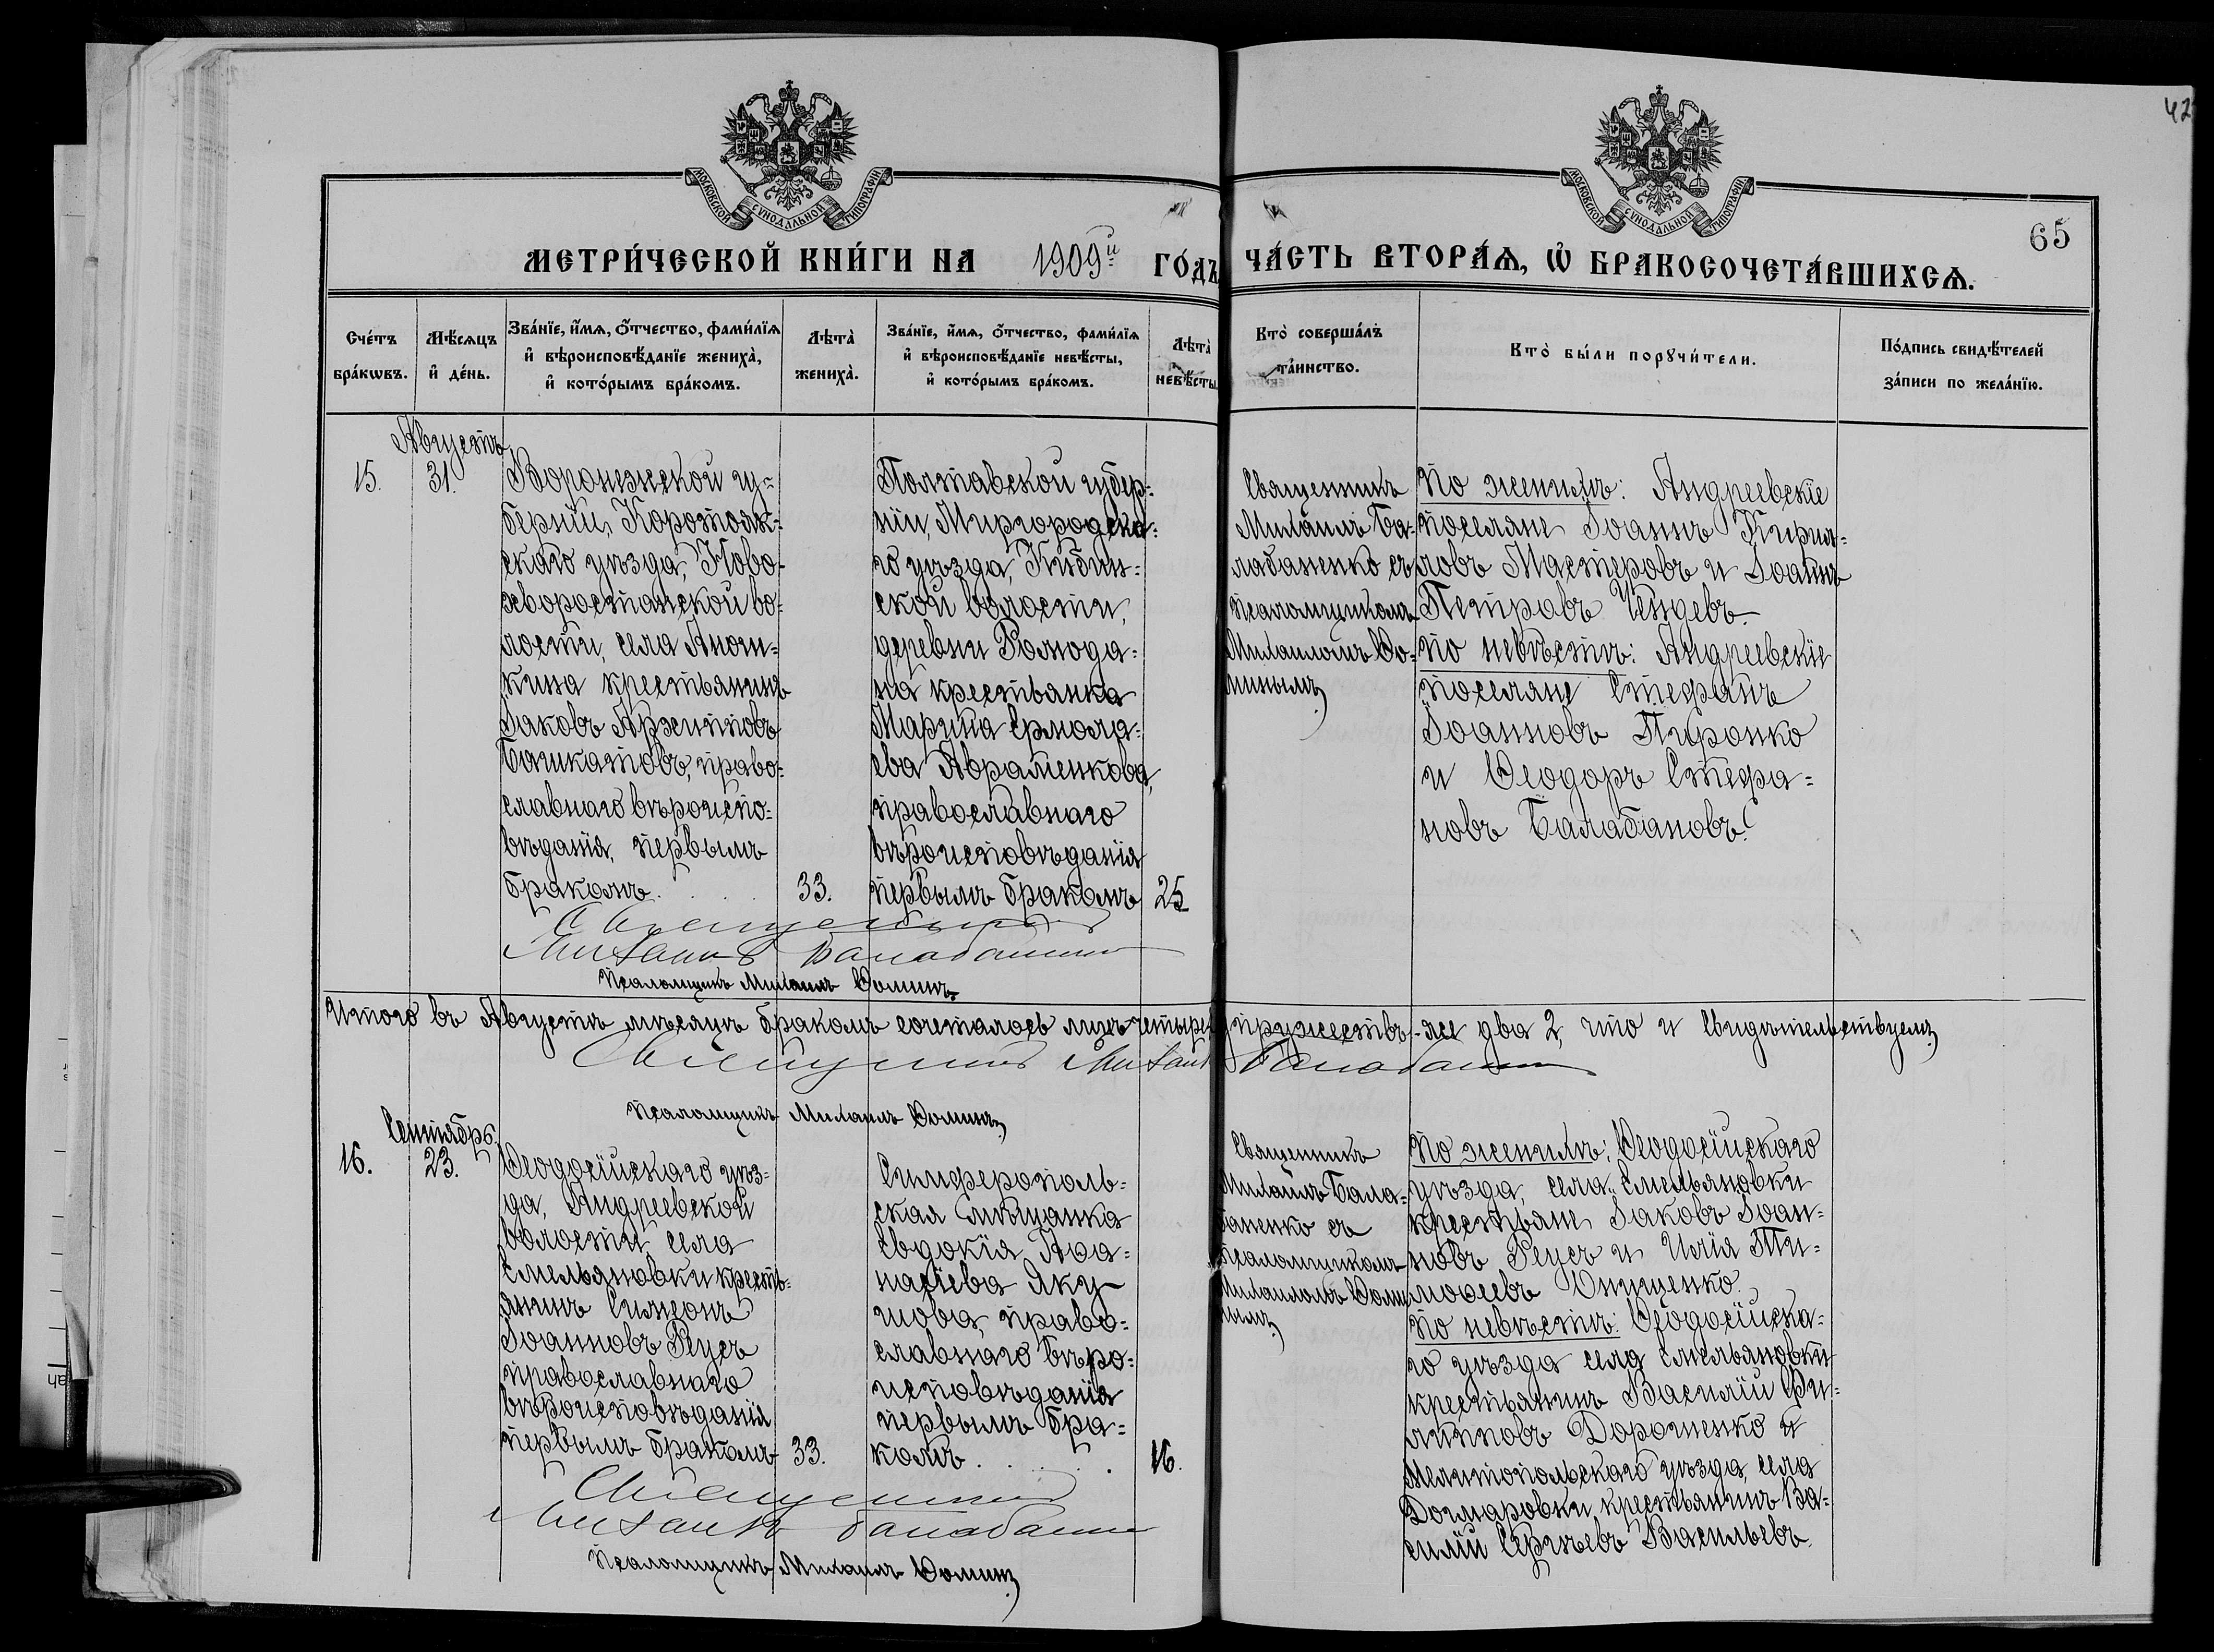 42
МОСКОВСКОЙ СѴНОДАЛЬНОЙ ТИПОГРАФІИ
МОСКОВСКОЙ СѴНОДАЛЬНОЙ ТИПОГРАФІИ
65
МЕТРИ́ЧЕСКОЙ КНИ́ГИ НА 1909й ГО́ДЪ
ЧА́СТЬ ВТОРА́Ѧ, Ѡ҆ БРАКОСОЧЕТА́ВШИХСѦ.
Сче́тъ
бра́кѡвъ.
Мѣ́сяцъ
и҆ де́нь.
Зва́нїе, и҆́мя, ѻ҆́тчество, фами́лїя
и҆ вѣроисповѣ́данїе жениха̀,
и҆ кото́рымъ бра́комъ.
Лѣта̀
жениха̀.
Зва́нїе, и҆́мя, ѻ҆́тчество, фами́лїя
и҆ вѣроисповѣ́данїе невѣ́сты,
и҆ кото́рымъ бра́комъ.
Лѣта̀
невѣ́сты.
Кто̀ соверша́лъ
та́инство.
Кто̀ бы́ли порꙋчи́тели.
По́дпись свидѣ́телей
за́писи по жела́нїю.
Августъ
15.
31.
Воронежской гу=
берніи, Коротояк=
скаго уѣзда, Ново-
хворостанской во=
лости, села Анош=
кина крестьянинъ
Іаковъ Архиповъ
Башкатовъ, право=
славнаго вѣроиспо=
вѣданія, первымъ
бракомъ.
33.
Полтавской губер=
ніи, Миргородска=
го уѣзда, Кибин=
ской волости,
деревни Ромода=
на крестьянка
Марина Ермола=
ева Авраменкова,
православнаго
вѣроисповѣданія
первымъ бракомъ
25
Священникъ
Михаилъ Ба=
лабаненко съ
псаломщикомъ
Михаиломъ Ѳо=
минымъ
По женихѣ: Андреевскіе
поселяне Іоаннъ Кирил=
ловъ Мастеровъ и Іоаннъ
Петровъ
По невѣстѣ: Андреевскіе
поселяне Стефанъ
Іоанновъ Пиронко
и Ѳеодоръ Стефа=
новъ Балабановъ.
Священникъ
Михаилъ Балабаненко
Псаломщикъ Михаилъ Ѳоминъ.
Итого въ Августѣ мѣсяцѣ бракомъ сочеталось лицъ четыре, супружествъ-же два 2, что и свидѣтельствуемъ
Священникъ Михаилъ Балабаненко
Псаломщикъ Михаилъ Ѳоминъ
Сентябрь.
16.
23.
Ѳеодосійскаго уѣз=
да, Андреевской
волости, села
Емельяновки кресть=
янинъ Симеонъ
Іоанновъ Реусъ
православнаго
вѣроисповѣданія
первымъ бракомъ
33.
Симферополь=
ская мѣщанка
Евдокія Аѳа=
насіева Яку
шова, право=
славнаго вѣро=
исповѣданія
первымъ бра=
комъ.
16.
Священникъ
Михаилъ Бала=
баненко съ
псаломщикомъ
Михаиломъ Ѳоми
нымъ
По женихѣ: Ѳеодосійскаго
уѣзда, села Емельяновки
крестьяне Іаковъ Іоан=
новъ Реусъ и Илія Ти=
моѳеевъ Онищенко.
По невѣстѣ: Ѳеодосійска=
го уѣзда села Емельяновки
крестьянинъ Василій Фи=
липповъ Дорошенко и
Мелитопольскаго уѣзда, села
Догмаровки крестьянинъ Ва=
силій Сергѣевъ Васильевъ.
Священникъ
Михаилъ Балабаненко
Псаломщикъ Михаилъ Ѳоминъ